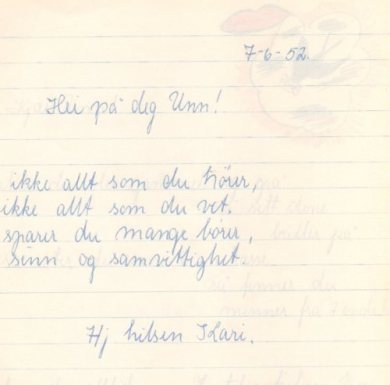 7-6-52.
Hei på deg Unn!
ikke allt som du hörer,
ikke allt som du vet.
sparer du mange börer,
sinn og samvittighet
Hj hilsen Kari.